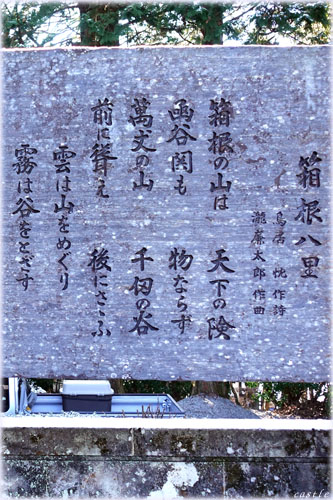 箱根八里
鳥居 忱 作詩
瀧 廉太郎 作曲
箱根の山は 天下の険
函谷関も 物ならず
萬丈の山 千仞の谷
前に聳え 後にさゝふ
雲は山をめぐり
霧は谷をとざす